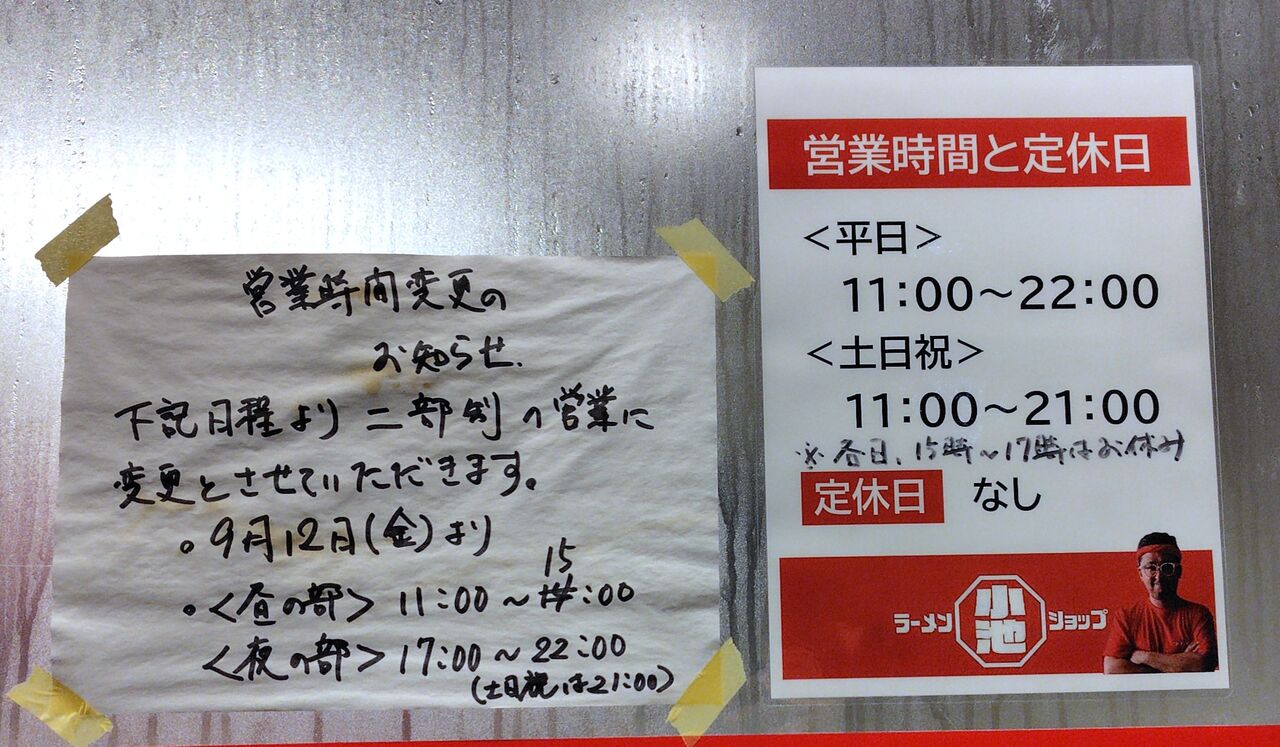 営業時間変更の
お知らせ.
下記日程より二部制の営業に
変更とさせていただきます。
・9月12日(金)より
・<昼の部> 11:00～15:00
<夜の部> 17:00～22:00
(土日祝は21:00)
営業時間と定休日
<平日>
11:00～22:00
<土日祝>
11:00～21:00
※各日、15時～17時はお休み
定休日 なし
ラーメン 小池 ショップ